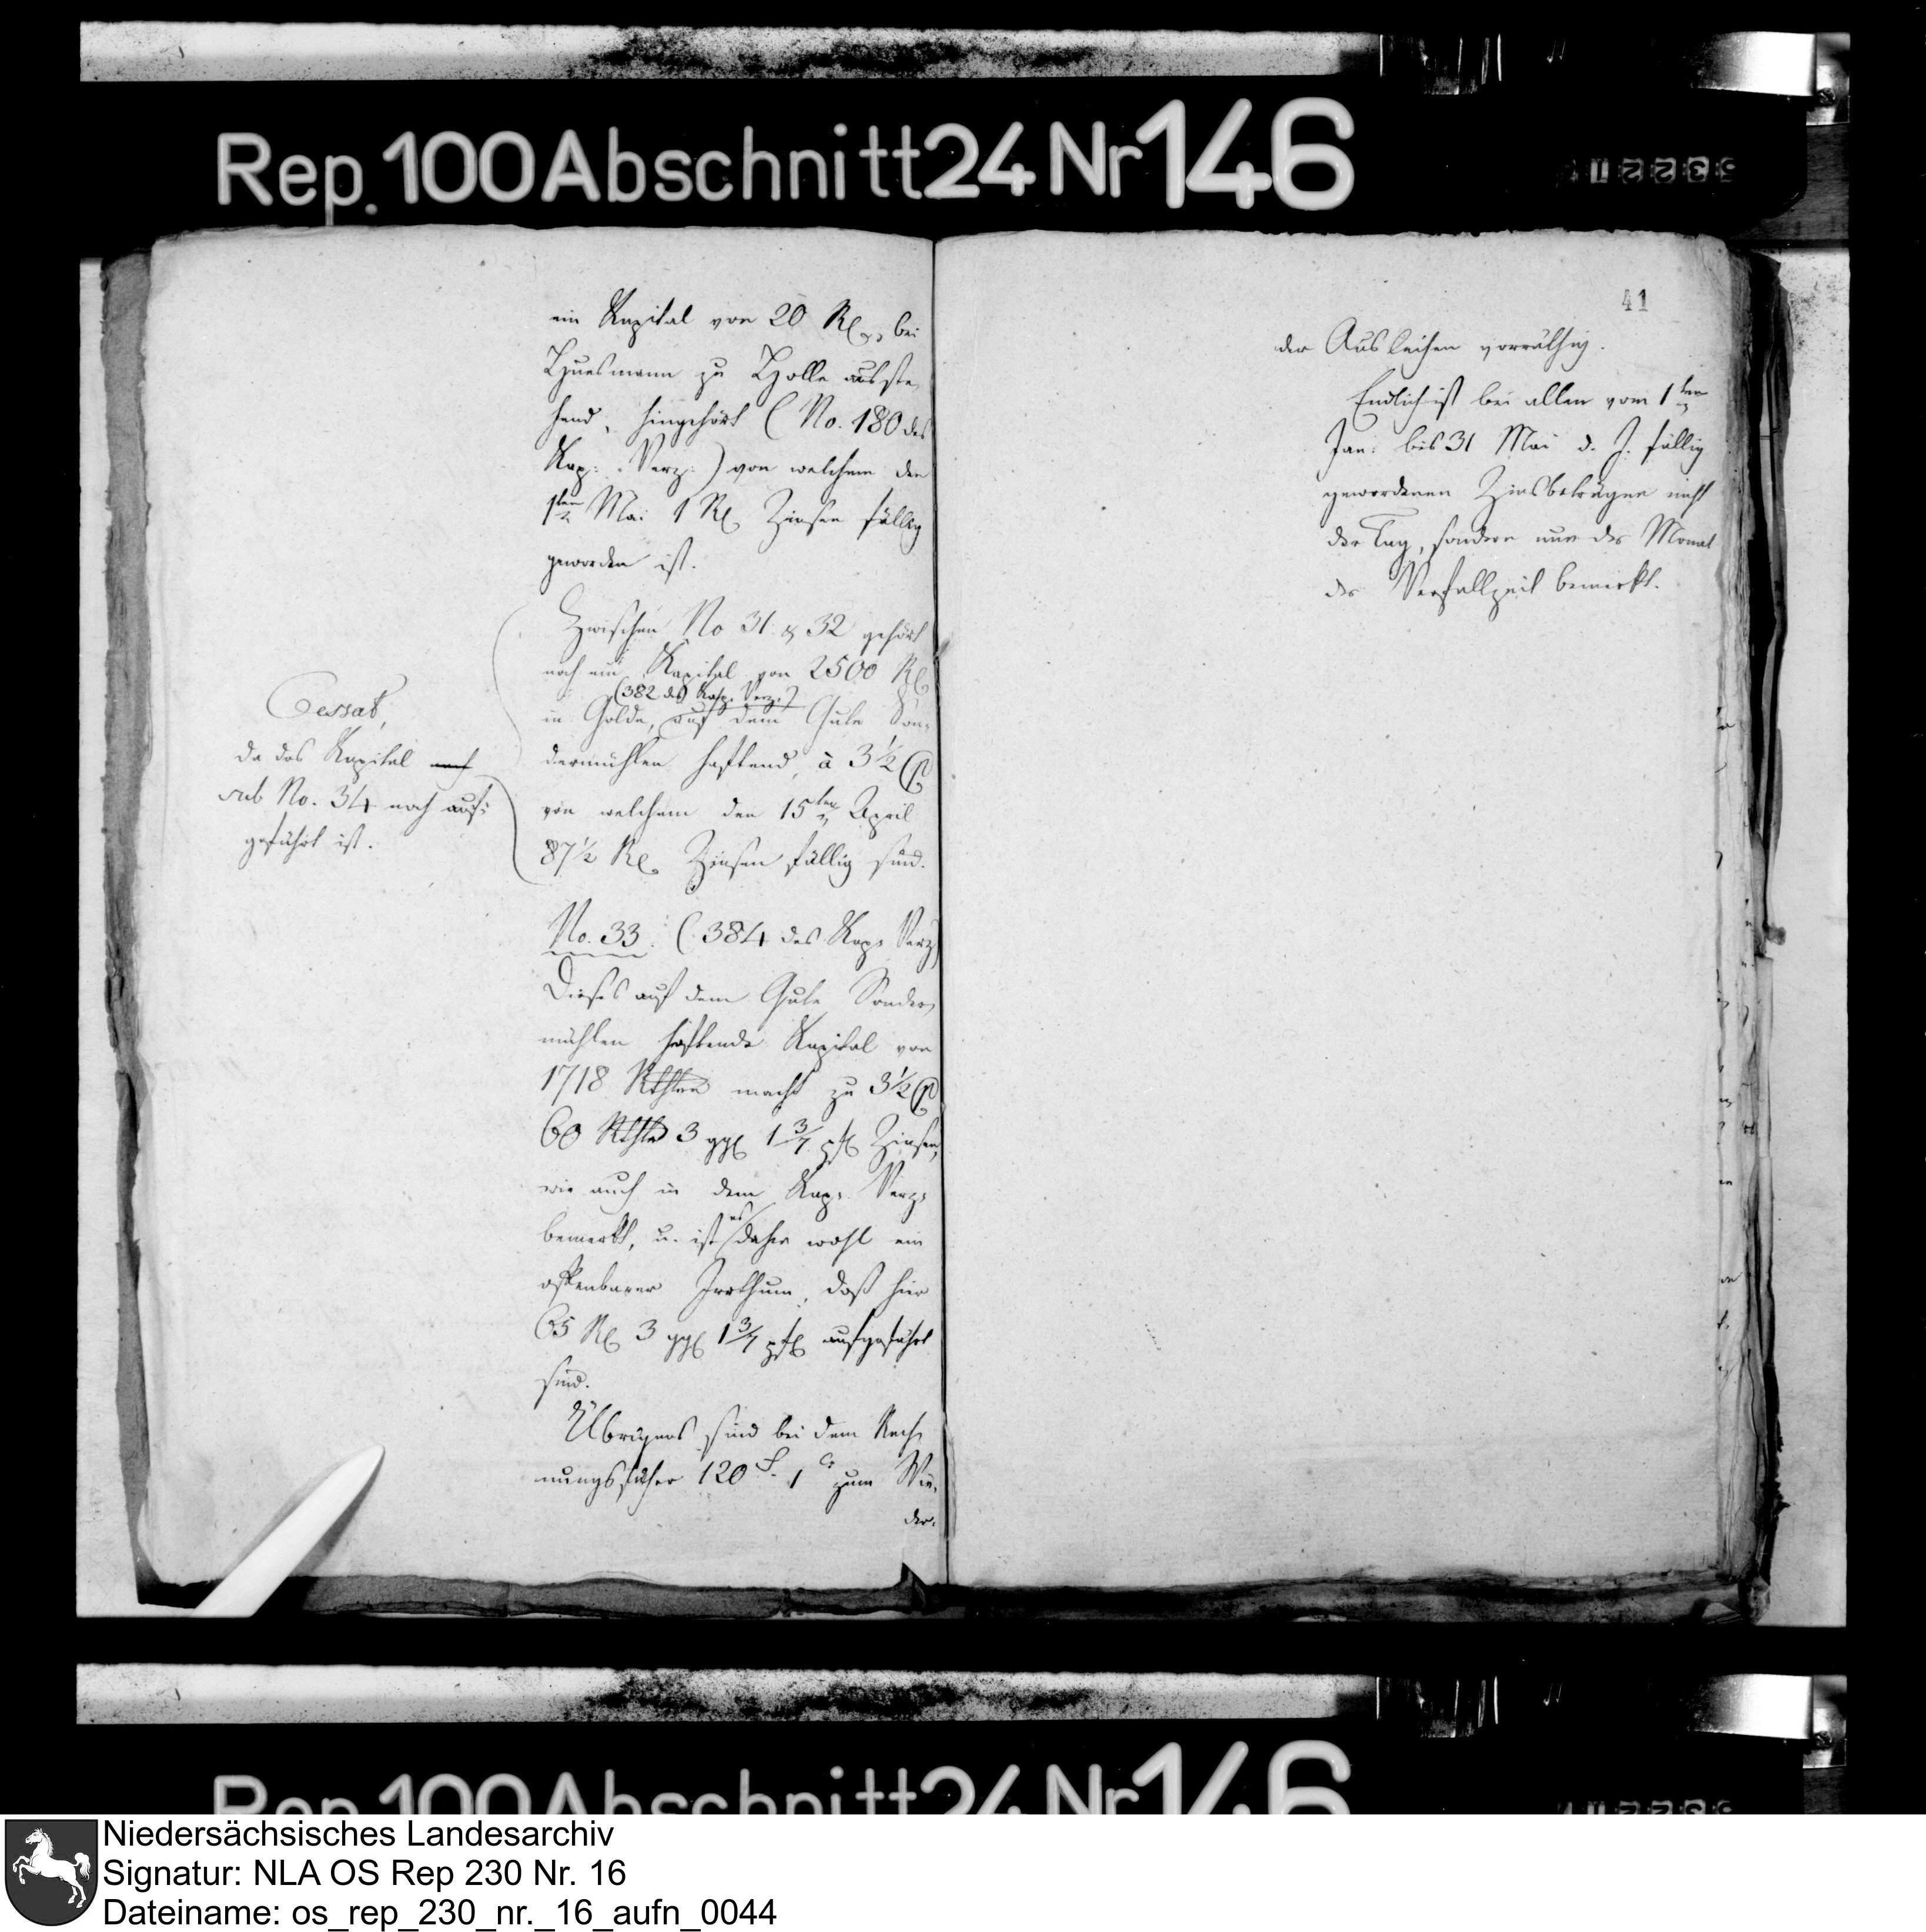 Rep. 100 Abschnitt 24 Nr 146
ein Kapital von 20 Rl bei
Thuesmann zu Holle ausste,
hend, hingehört (No. 180 des
Kap: Verz:) von welchem den
1ten Mai 1 Rl Zinsen fällig
geworden ist.
Zwischen No 31 & 32 gehört
noch ein Kapital von 2500 Rl
(382 des Kap. Verz.)
in Golde, auf dem Gute Son,
dermühlen haftend, à 3½
von welchem den 15ten April
87½ Rl Zinsen fällig sind.
Cessat,
da das Kapital noch
sub No. 34 noch auf:
geführt ist.
No. 33. (384 des Kap: Verz)
Dieses auf dem Gute Sonder,
mühlen haftende Kapital von
1718 Rthlrn macht zu 3½
60 Rthlr 3 ggl 1 3/7 pfl Zinsen,
wie auch in dem Kap: Verz:
bemerkt, u. ist es daher wohl ein
offenbarer Irrthum, daß hier
65 Rl 3 ggl 1 3/7 pfl aufgeführt
sind.
Übrigens sind bei dem Rech,
nungsführer 120 f. 1 c. zum Wie,
der:
41
der Ausleihen vorräthig.
Endlich ist bei allen vom 1ten
Jan: bis 31 Mai d. J. fällig
gewordenen Zinsbeträgen nicht
der Tag, sondern nur der Monat
der Verfallzeit bemerkt.
Niedersächsisches Landesarchiv
Signatur: NLA OS Rep 230 Nr. 16
Dateiname: os_rep_230_nr._16_aufn_0044